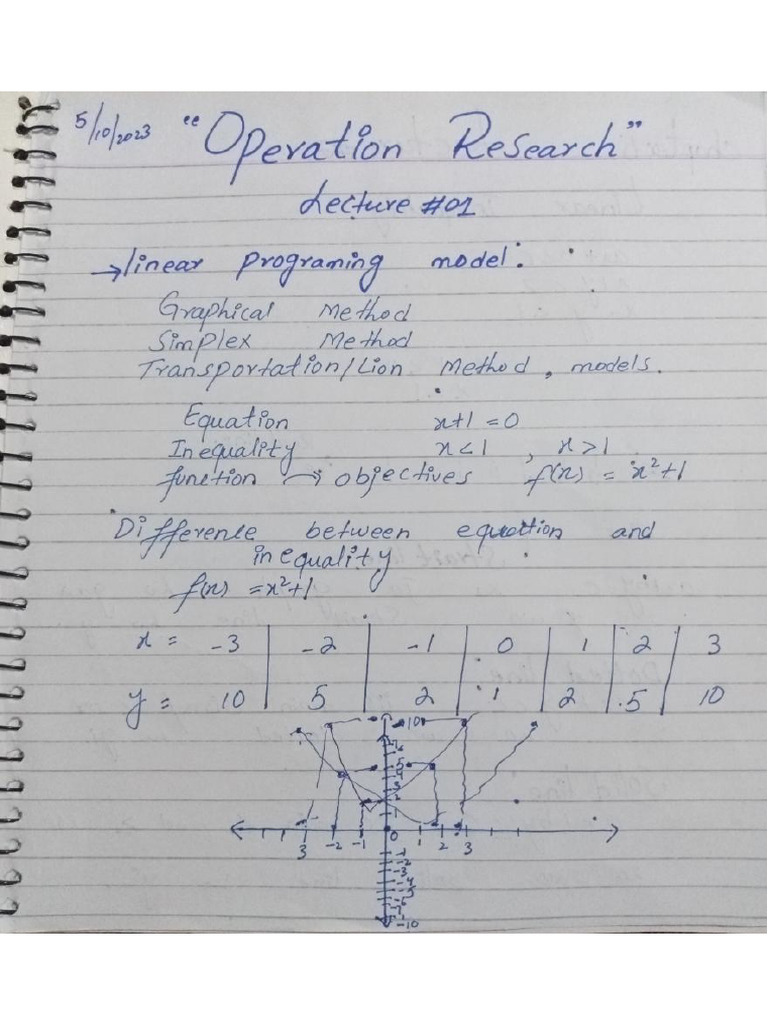 5/10/2023 "Operation Research"
Lecture #01
→ linear programing model:
Graphical Method
Simplex Method
Transportation/Lion Method, models.
Equation x+1=0
Inequality x<1 , x>1
function → objectives f(x) = x²+1
Difference between equation and
inequality
f(x) = x²+1
x = -3 | -2 | -1 | 0 | 1 | 2 | 3
y = 10 | 5 | 2 | 1 | 2 | 5 | 10
10
6
5
4
3
2
1
3 -2 -1 0 1 2 3
-1
-2
-3
-4
-5
-10